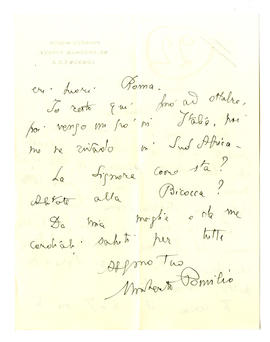 eri fuori Roma.
Io resto qui fino ad ottobre,
poi vengo un pò in Italia, poi
me ne in Sud Africa.
La Signora come sta?
alla Bicocca?
Da mia moglie e da me
cordiali saluti per tutti
Tuo
Umberto Pomilio